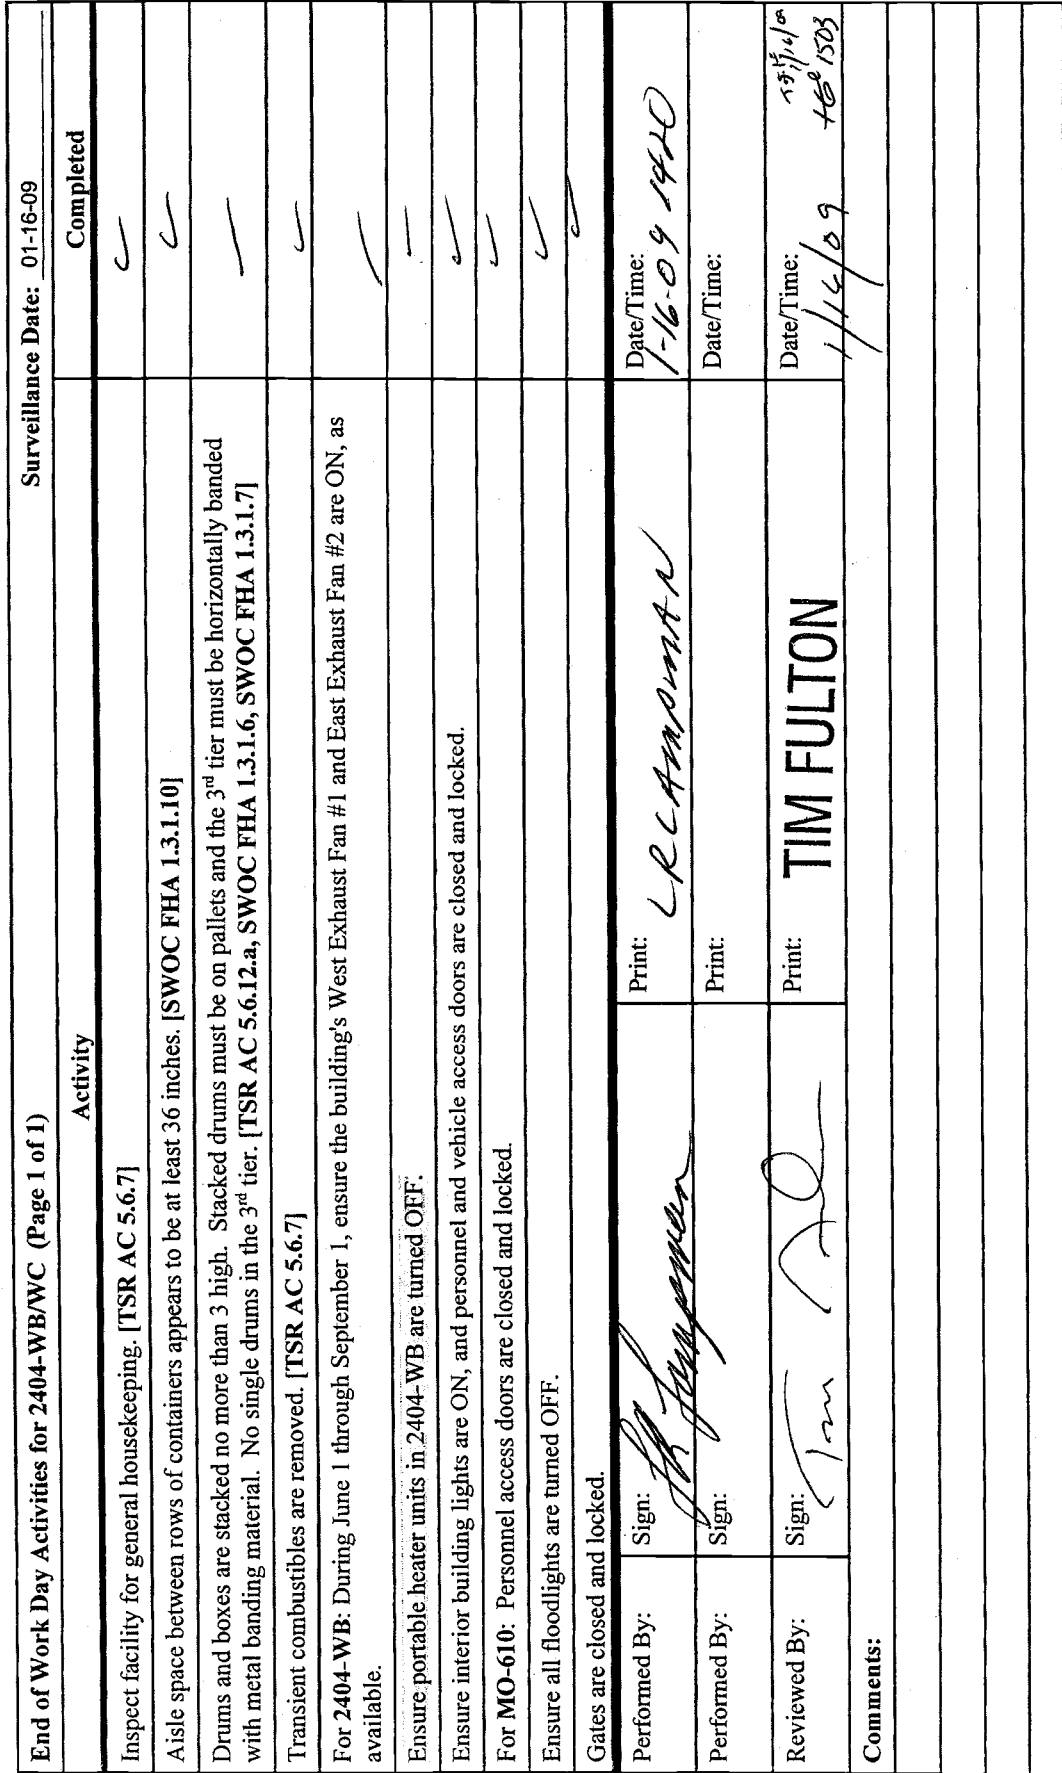 End of Work Day Activities for 2404-WB/WC (Page 1 of 1) Surveillance Date: 01-16-09
Activity Completed
Inspect facility for general housekeeping. [TSR AC 5.6.7]
Aisle space between rows of containers appears to be at least 36 inches. [SWOC FHA 1.3.1.10]
Drums and boxes are stacked no more than 3 high. Stacked drums must be on pallets and the 3rd tier must be horizontally banded
with metal banding material. No single drums in the 3rd tier. [TSR AC 5.6.12.a, SWOC FHA 1.3.1.6, SWOC FHA 1.3.1.7]
Transient combustibles are removed. [TSR AC 5.6.7]
For 2404-WB: During June 1 through September 1, ensure the building's West Exhaust Fan #1 and East Exhaust Fan #2 are ON, as
available.
Ensure portable heater units in 2404-WB are turned OFF.
Ensure interior building lights are ON, and personnel and vehicle access doors are closed and locked.
For MO-610: Personnel access doors are closed and locked.
Ensure all floodlights are turned OFF.
Gates are closed and locked.
Performed By: Sign: Print: LRCAMPMAN Date/Time: 1-16-09 1420
Performed By: Sign: Print: Date/Time:
Reviewed By: Sign: Tim Print: TIM FULTON Date/Time: 1/16/09 1503
Comments: